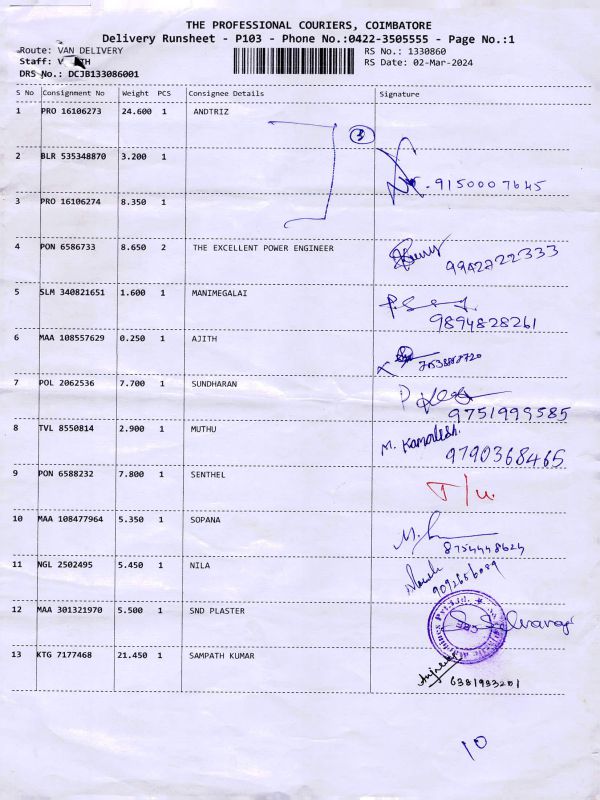 THE PROFESSIONAL COURIERS, COIMBATORE
Delivery Runsheet - P103 - Phone No.:0422-3505555 - Page No.:1
Route: VAN DELIVERY RS No.: 1330860
Staff: RS Date: 02-Mar-2024
DRS No.: DCJB133086001
S No Consignment No Weight PCS Consignee Details Signature
1 PRO 16106273 24.600 1 ANDTRIZ
3
2 BLR 535348870 3.200 1
9150007645
3 PRO 16106274 8.350 1
4 PON 6586733 8.650 2 THE EXCELLENT POWER ENGINEER
9942722333
5 SLM 340821651 1.600 1 MANIMEGALAI
9894828261
6 MAA 108557629 0.250 1 AJITH
7 POL 2062536 7.700 1 SUNDHARAN
9751999585
8 TVL 8550814 2.900 1 MUTHU
M. Kamalesh.
9790368465
9 PON 6588232 7.800 1 SENTHEL
T/u.
10 MAA 108477964 5.350 1 SOPANA
8754448624
11 NGL 2502495 5.450 1 NILA
9092656089
12 MAA 301321970 5.500 1 SND PLASTER
CBE
13 KTG 7177468 21.450 1 SAMPATH KUMAR
6381933201
10